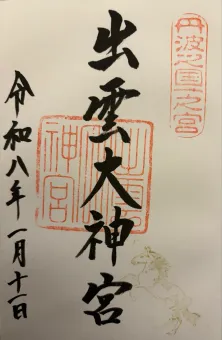 丹波国一之宮
出雲大神宮
出雲大神宮
令和八年一月十一日